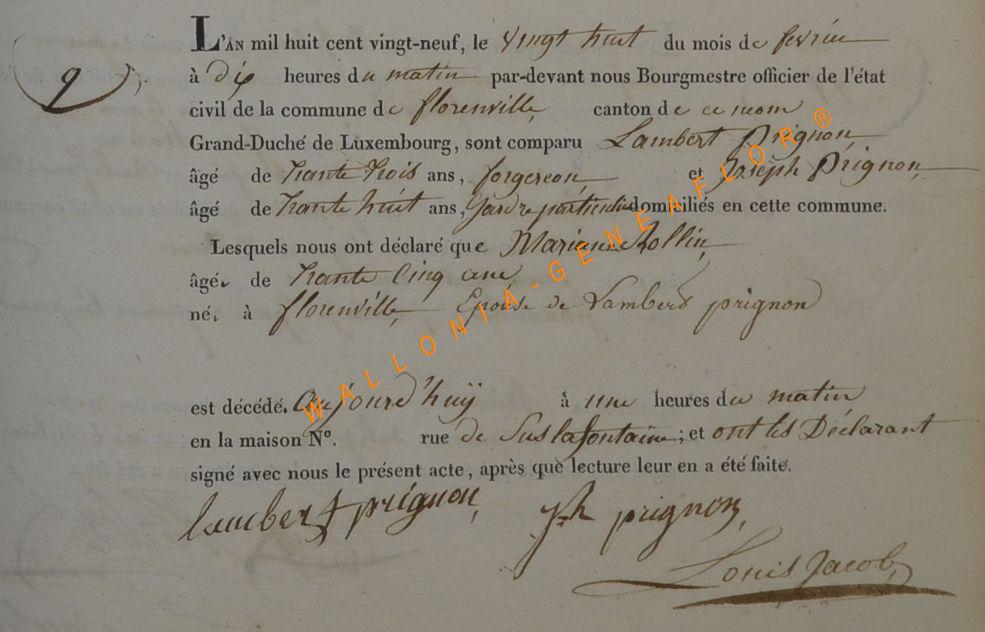 9
L'AN mil huit cent vingt-neuf, le vingt huit du mois de fevrier
à dix heures du matin par-devant nous Bourgmestre officier de l'état
civil de la commune de florenville, canton de ce nom
Grand-Duché de Luxembourg, sont comparu Lambert Prignon,
âgé de trante trois ans, forgereon et Joseph Prignon
âgé de trante huit ans, Gardre particulier domiciliés en cette commune.
Lesquels nous ont déclaré que Mariane Rollin,
âgé de trante Cinq ans
né à florenville, Epouse de Lambert prignon
est décédé aujourd'huÿ à une heures du matin
en la maison N°. rue de Sus la fontaine; et ont les Déclarant
signé avec nous le présent acte, après que lecture leur en a été faite.
lambert prignon, Jph prignon,
Louis Jacob,
WALLONIA-GENEAFLOR®